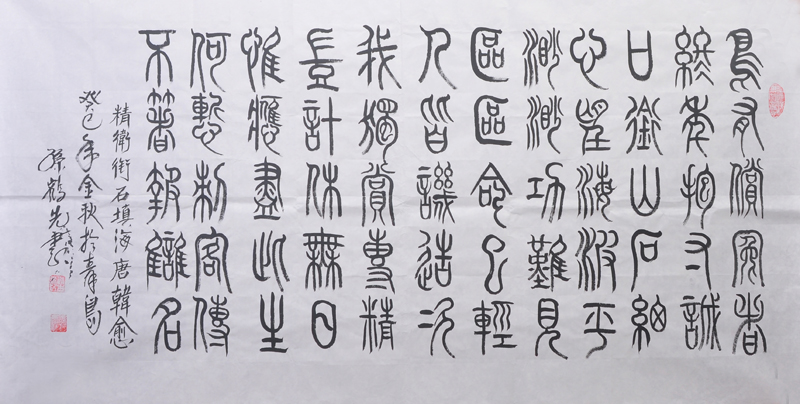 鳥有償冤者
終年抱寸誠
口銜山石細
心望海波平
渺渺功難見
區區命已輕
人皆譏造次
我獨賞專精
豈計休無日
惟應盡此生
何慙刺客傳
不著報讎名
精衛銜石填海唐韓愈
癸巳年金秋於青島
孫鶴先書